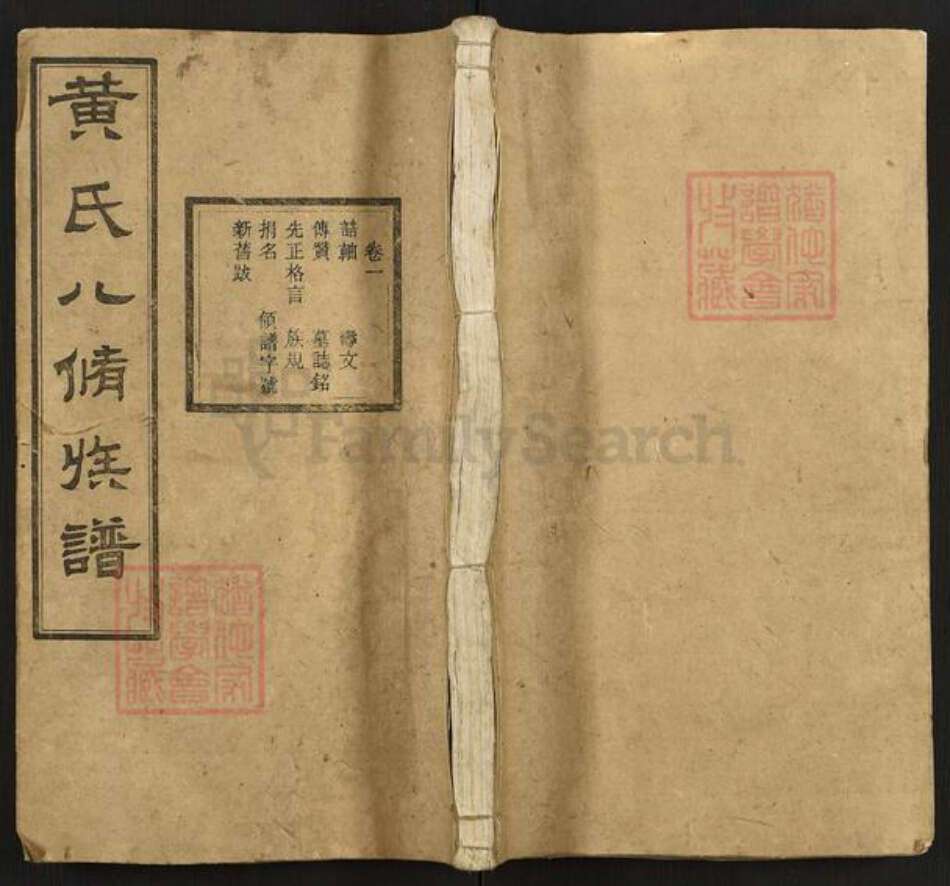 黄氏八脩族譜
卷一
誥軸 㝷文
傳贊 墓誌銘
先正格言 族規
捐名 領譜字號
新舊跋
FamilySearch
譜學會
藏
譜學會
藏